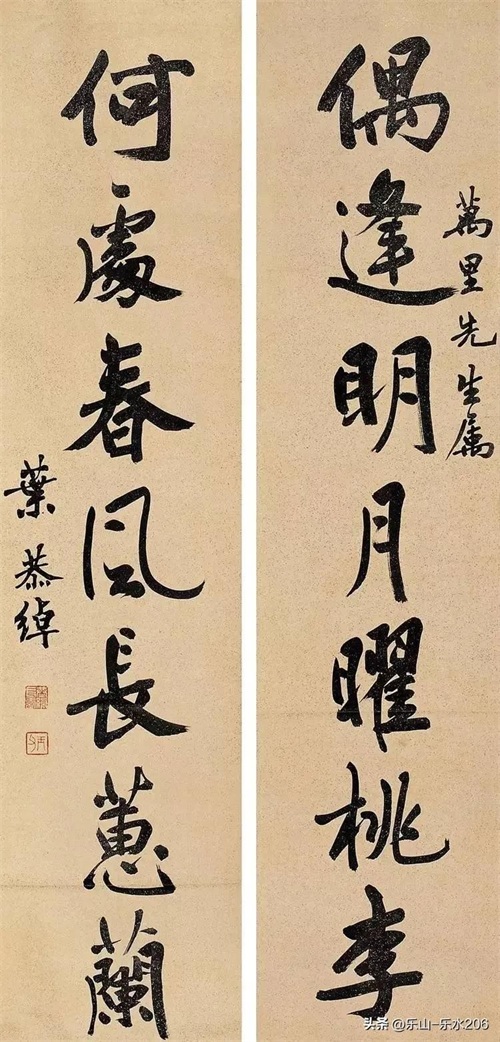 萬里先生属
偶逢明月曜桃李
何處春风長蕙蘭
葉恭綽
头条 @乐山-乐水206